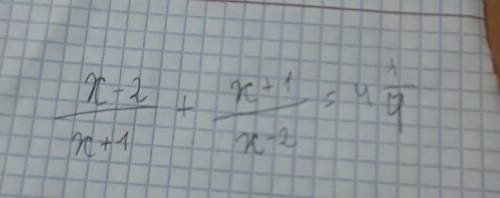 (x-2)/(x+1) + (x+1)/(x-2) = 4 1/4